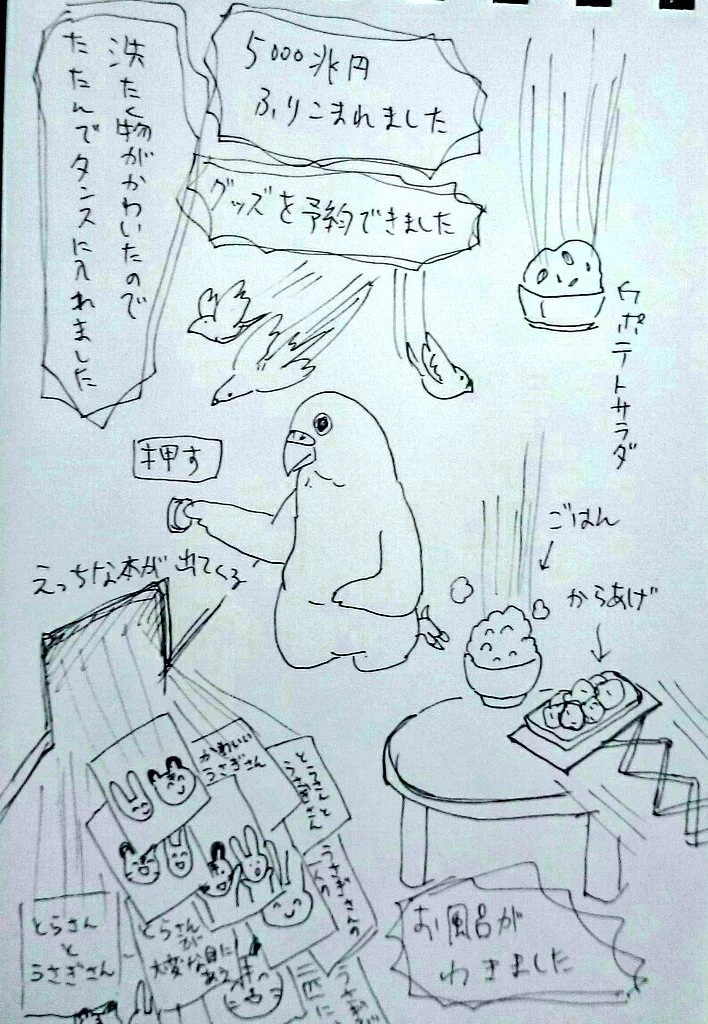 洗たく物がかわいたので
たたんでタンスに入れました
5000兆円
ふりこまれました
グッズを予約できました
←ポテトサラダ
押す
えっちな本が出てくる
ごはん
からあげ
かわいい
うさぎさん
とらさんと
うさぎさん
うさぎさんの
とらさん
と
うさぎさん
とらさん
が
大変な目に
あう
お風呂が
わきました